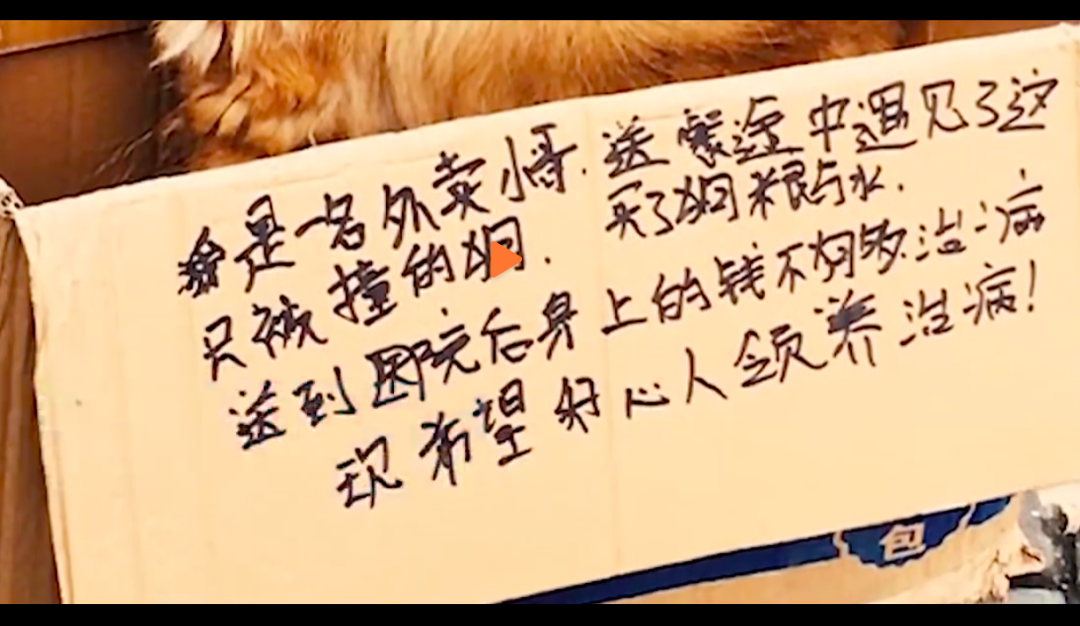 我是一名外卖小哥.送餐途中遇见了这
只被撞的狗.买了狗粮与水.
送到医院后身上的钱不够多治病
现希望好心人领养治病!
包